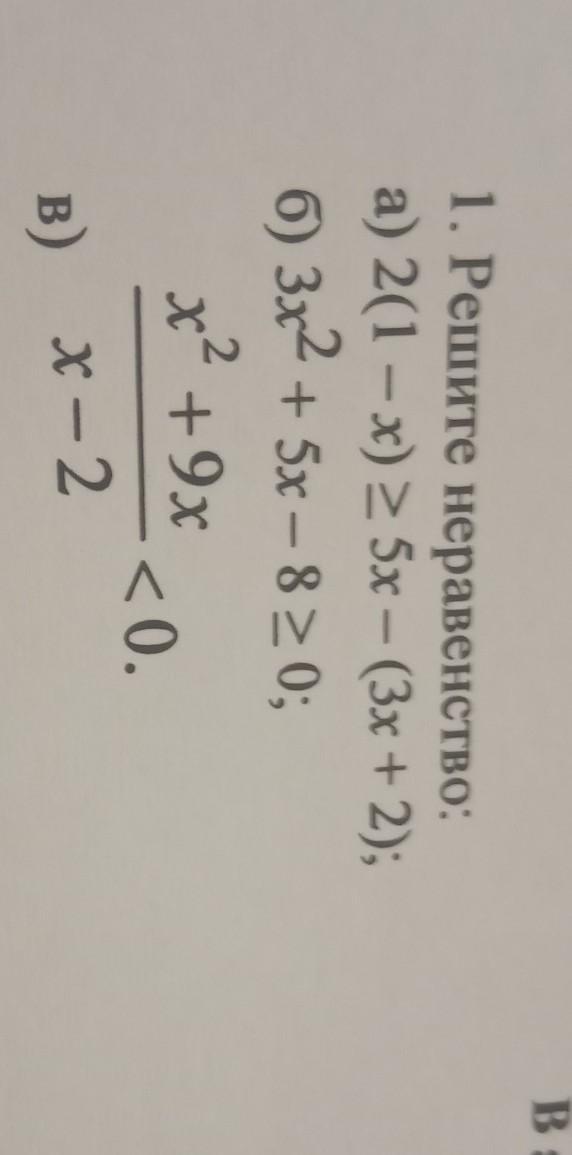 1. Решите неравенство:
а) 2(1 – x) ≥ 5x – (3x + 2);
б) 3x² + 5x – 8 ≥ 0;
в) (x² + 9x)/(x – 2) < 0.
В